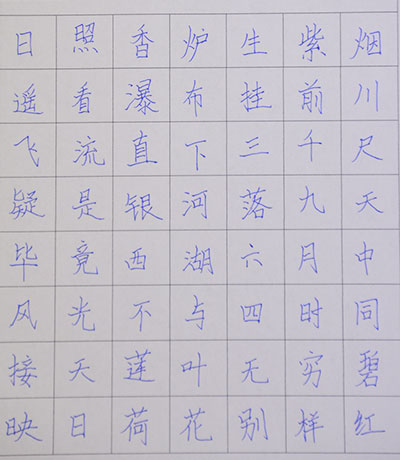 日照香炉生紫烟
遥看瀑布挂前川
飞流直下三千尺
疑是银河落九天
毕竟西湖六月中
风光不与四时同
接天莲叶无穷碧
映日荷花别样红